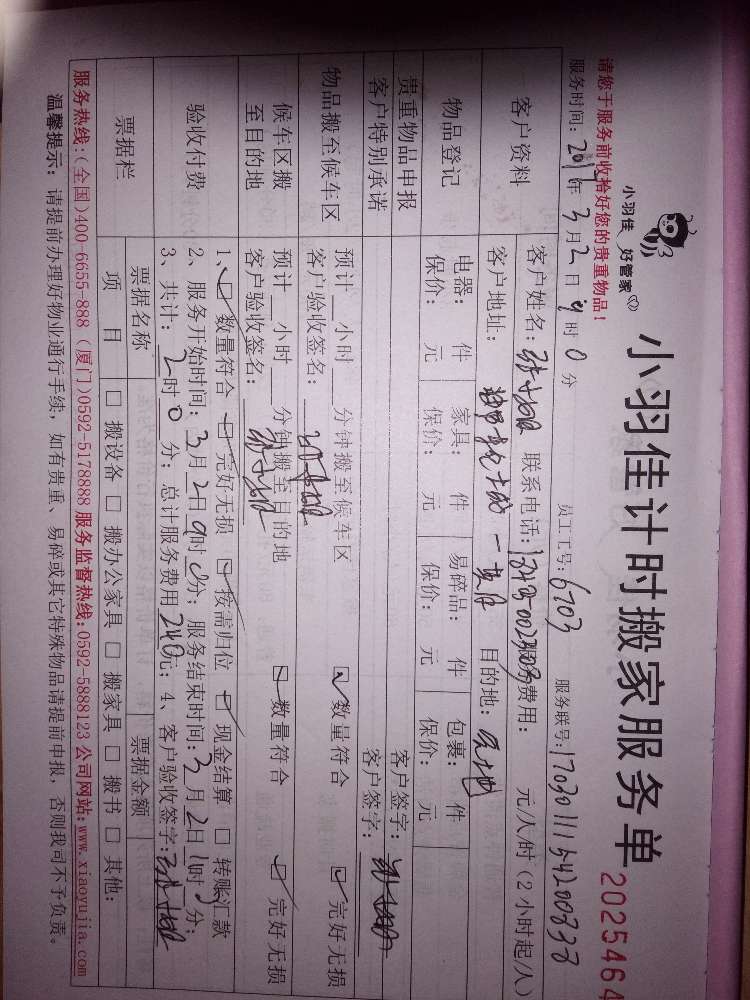 小羽佳 好管家
小羽佳计时搬家服务单
2025464
请您于服务前收拾好您的贵重物品！
服务时间： 年 3 月 2 日 9 时 0 分 员工工号：6703 服务联号：
客户资料 客户姓名： 联系电话： 服务费用： 元/人/时（2小时起/人）
客户地址： 目的地：
物品登记 电器： 件 家具： 件 易碎品： 件 包裹： 件
保价： 元 保价： 元 保价： 元 保价： 元
贵重物品申报 客户签字：
客户特别承诺 客户签字：
物品搬至候车区 预计 小时 分钟搬至候车区 ☑ 数量符合 ☑ 完好无损
客户验收签名：
候车区搬至目的地 预计 小时 分钟搬至目的地 ☑ 数量符合 ☑ 完好无损
客户验收签名：
验收付费 1、☑ 数量符合 ☑ 完好无损 ☑ 按需归位 ☑ 现金结算 □ 转账汇款
2、服务开始时间：3月2日9时0分；服务结束时间：3月2日 时 分；
3、共计：2时0分；总计服务费用240元；4、客户验收签字：
票据栏 票据名称 票据金额
项目 □ 搬设备 □ 搬办公家具 □ 搬家具 □ 搬书 □ 其他：
服务热线：(全国)400-6655-888 (厦门)0592-5178888 服务监督热线：0592-5888123 公司网站：www.xiaoyujia.com
温馨提示：请提前办理好物业通行手续，如有贵重、易碎或其它特殊物品请提前申报，否则我司不予负责。